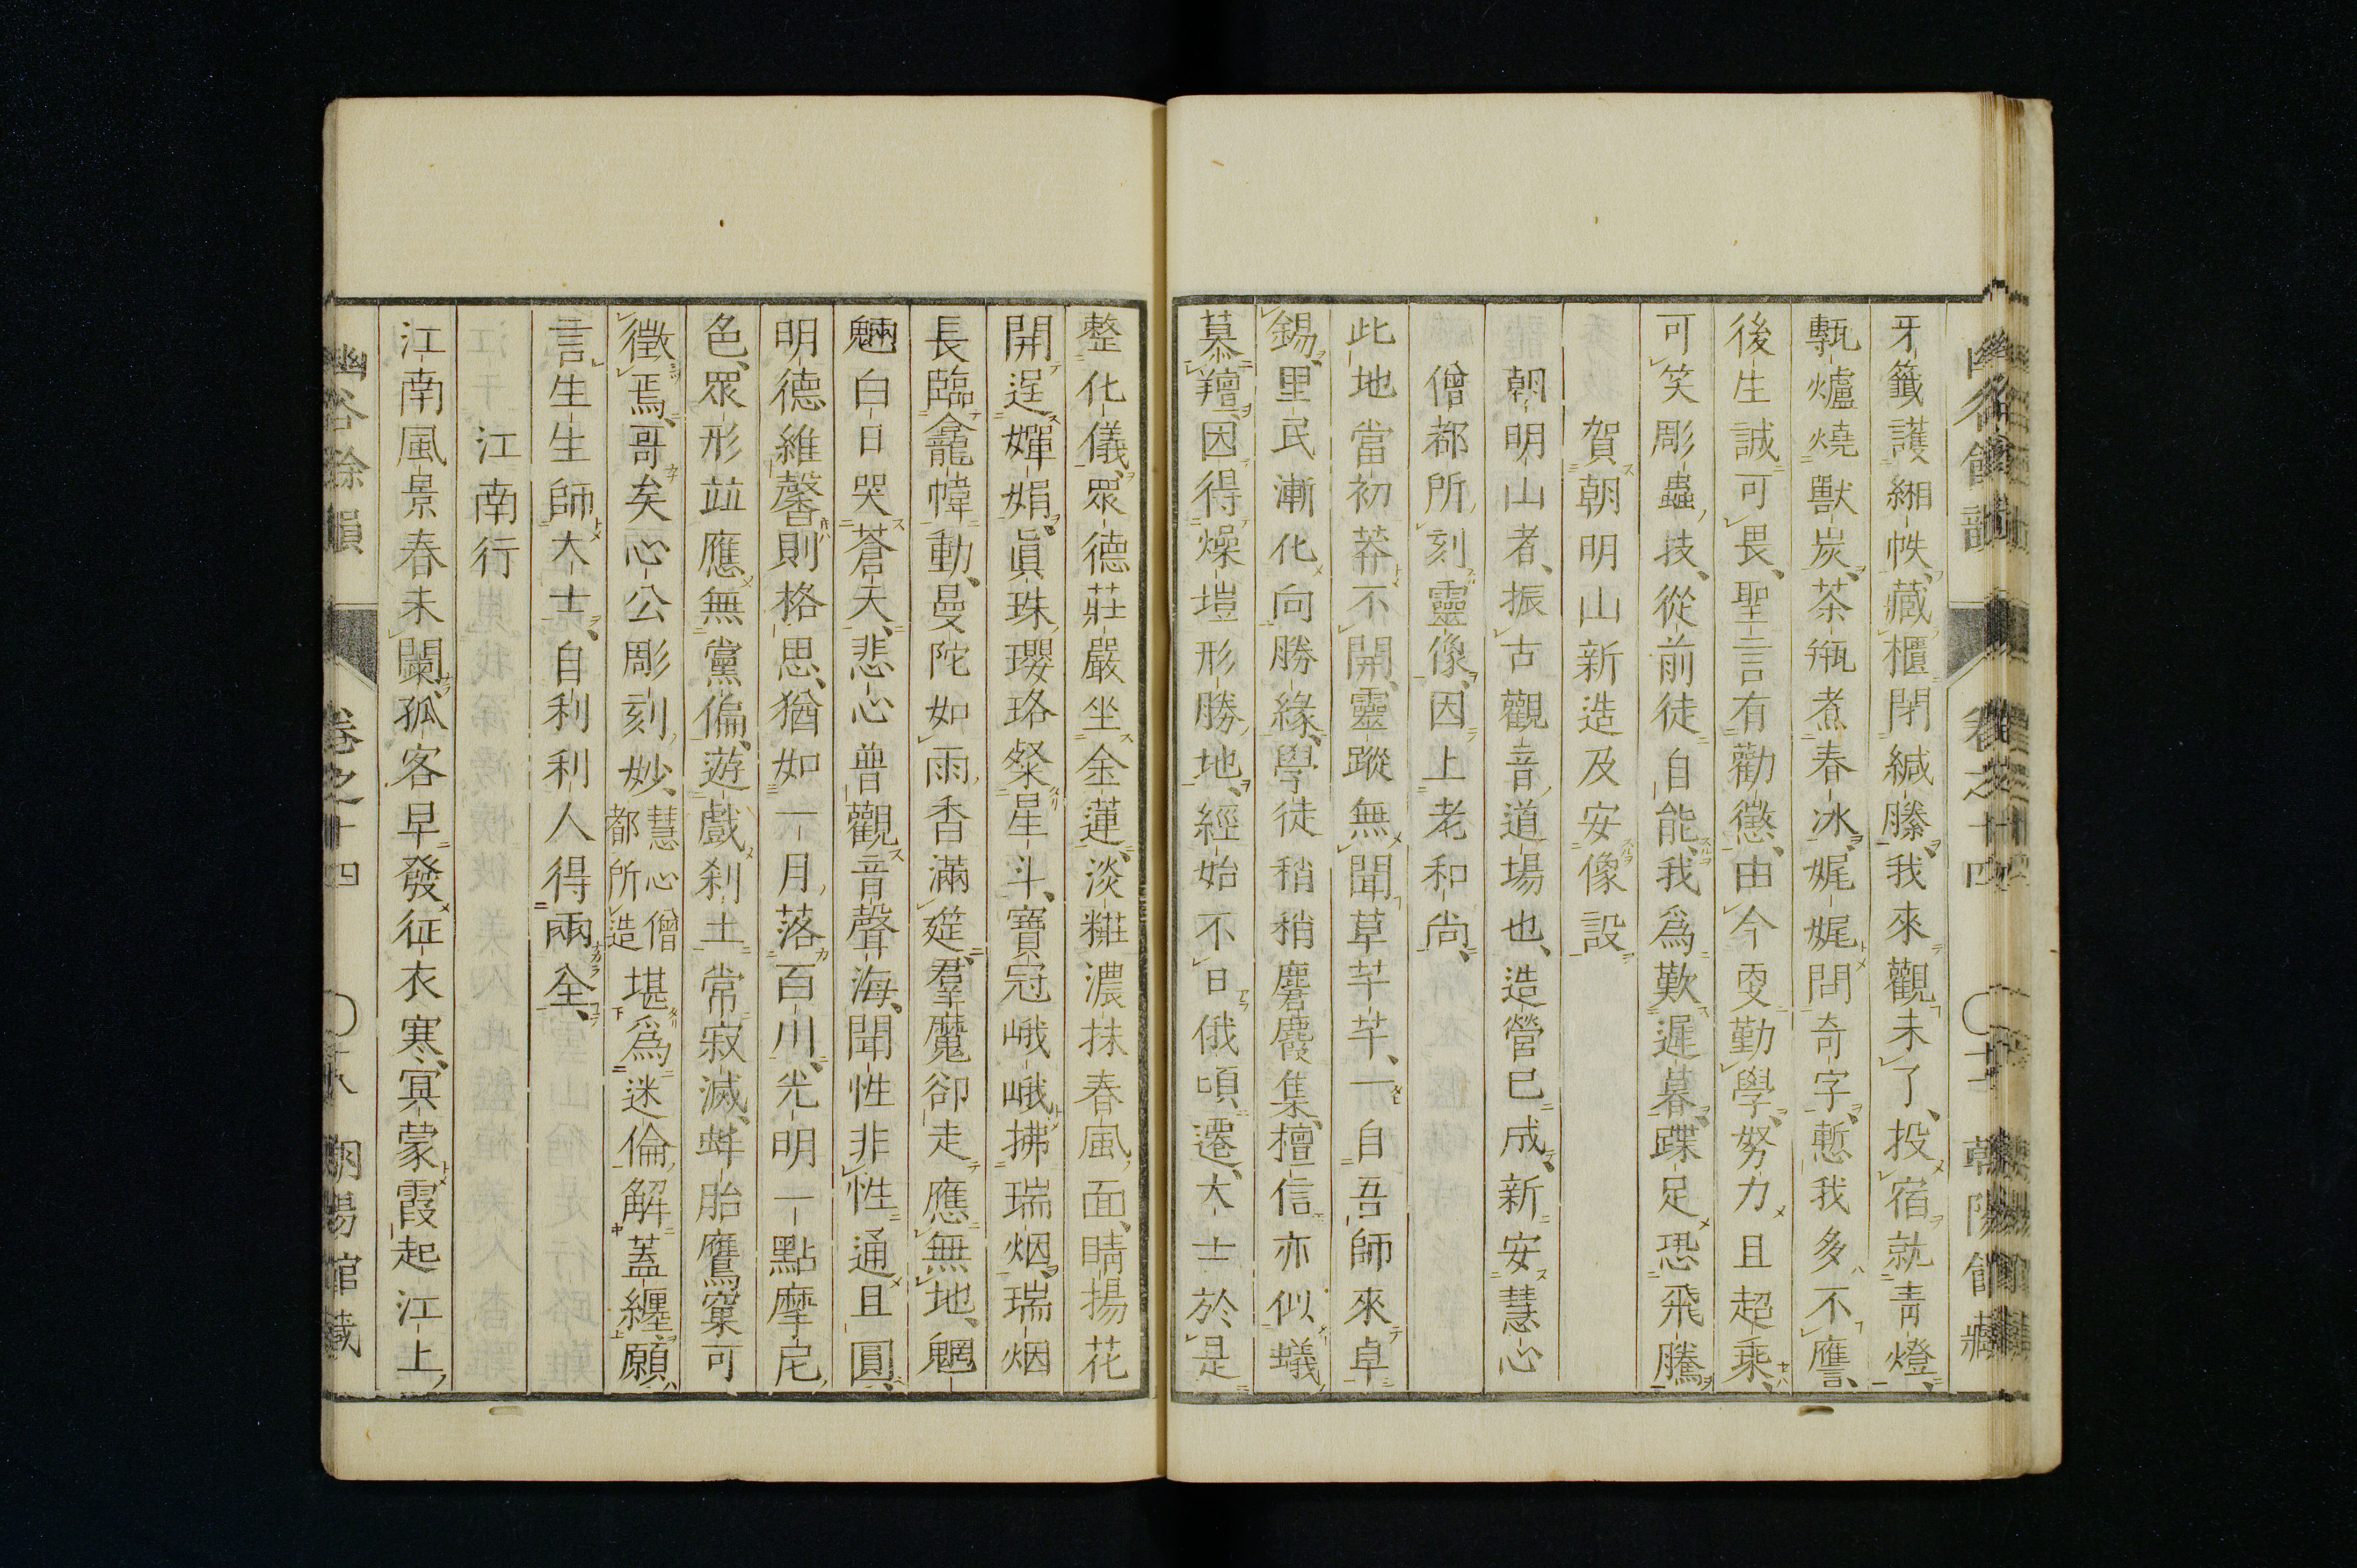 牙籤護緗帙、藏櫃閉緘縢、我來觀未了、投宿就青燈、
甎爐燒獸炭、茶瓶煮春冰、娓娓問奇字、慙我多不譍、
後生誠可畏、聖言有勸懲、由今更勤學、努力且超乘、
可笑彫蟲技、從前徒自能、我爲歎遲暮、蹀足恐飛騰
賀朝明山新造及安像設
朝明山者、振古觀音道場也、造營已成、新安慧心
僧都所刻靈像、因上老和尚、
此地當初莽不開、靈蹤無聞草芊芊、一自吾師來卓
錫、里民漸化向勝緣、學徒稍稍麏麚集、檀信亦似蟻
慕羶、因得燥塏形勝地、經始不日俄頃遷、大士於是
整化儀、眾德莊嚴坐金蓮、淡糚濃抹春風面、晴揚花
開逞嬋娟、眞珠瓔珞粲星斗、寶冠峨峨拂瑞烟、瑞烟
長臨龕幃動、曼陀如雨香滿筵、羣魔卻走應無地、魍
魎白日哭蒼天、悲心普觀音聲海、聞性非性通且圓、
明德維馨則格思、猶如一月落百川、光明一點摩尼
色、眾形竝應無黨偏、遊戲刹土常寂滅、蚌胎鷹窠可
徵焉、哥矣心公彫刻妙、慧心僧都所造堪爲迷倫解蓋纏、願
言生生師大士、自利利人得兩全、
江南行
江南風景春未闌、孤客早發征衣寒、冥蒙霞起江上
幽谷餘韻 卷之十四 朝陽館藏